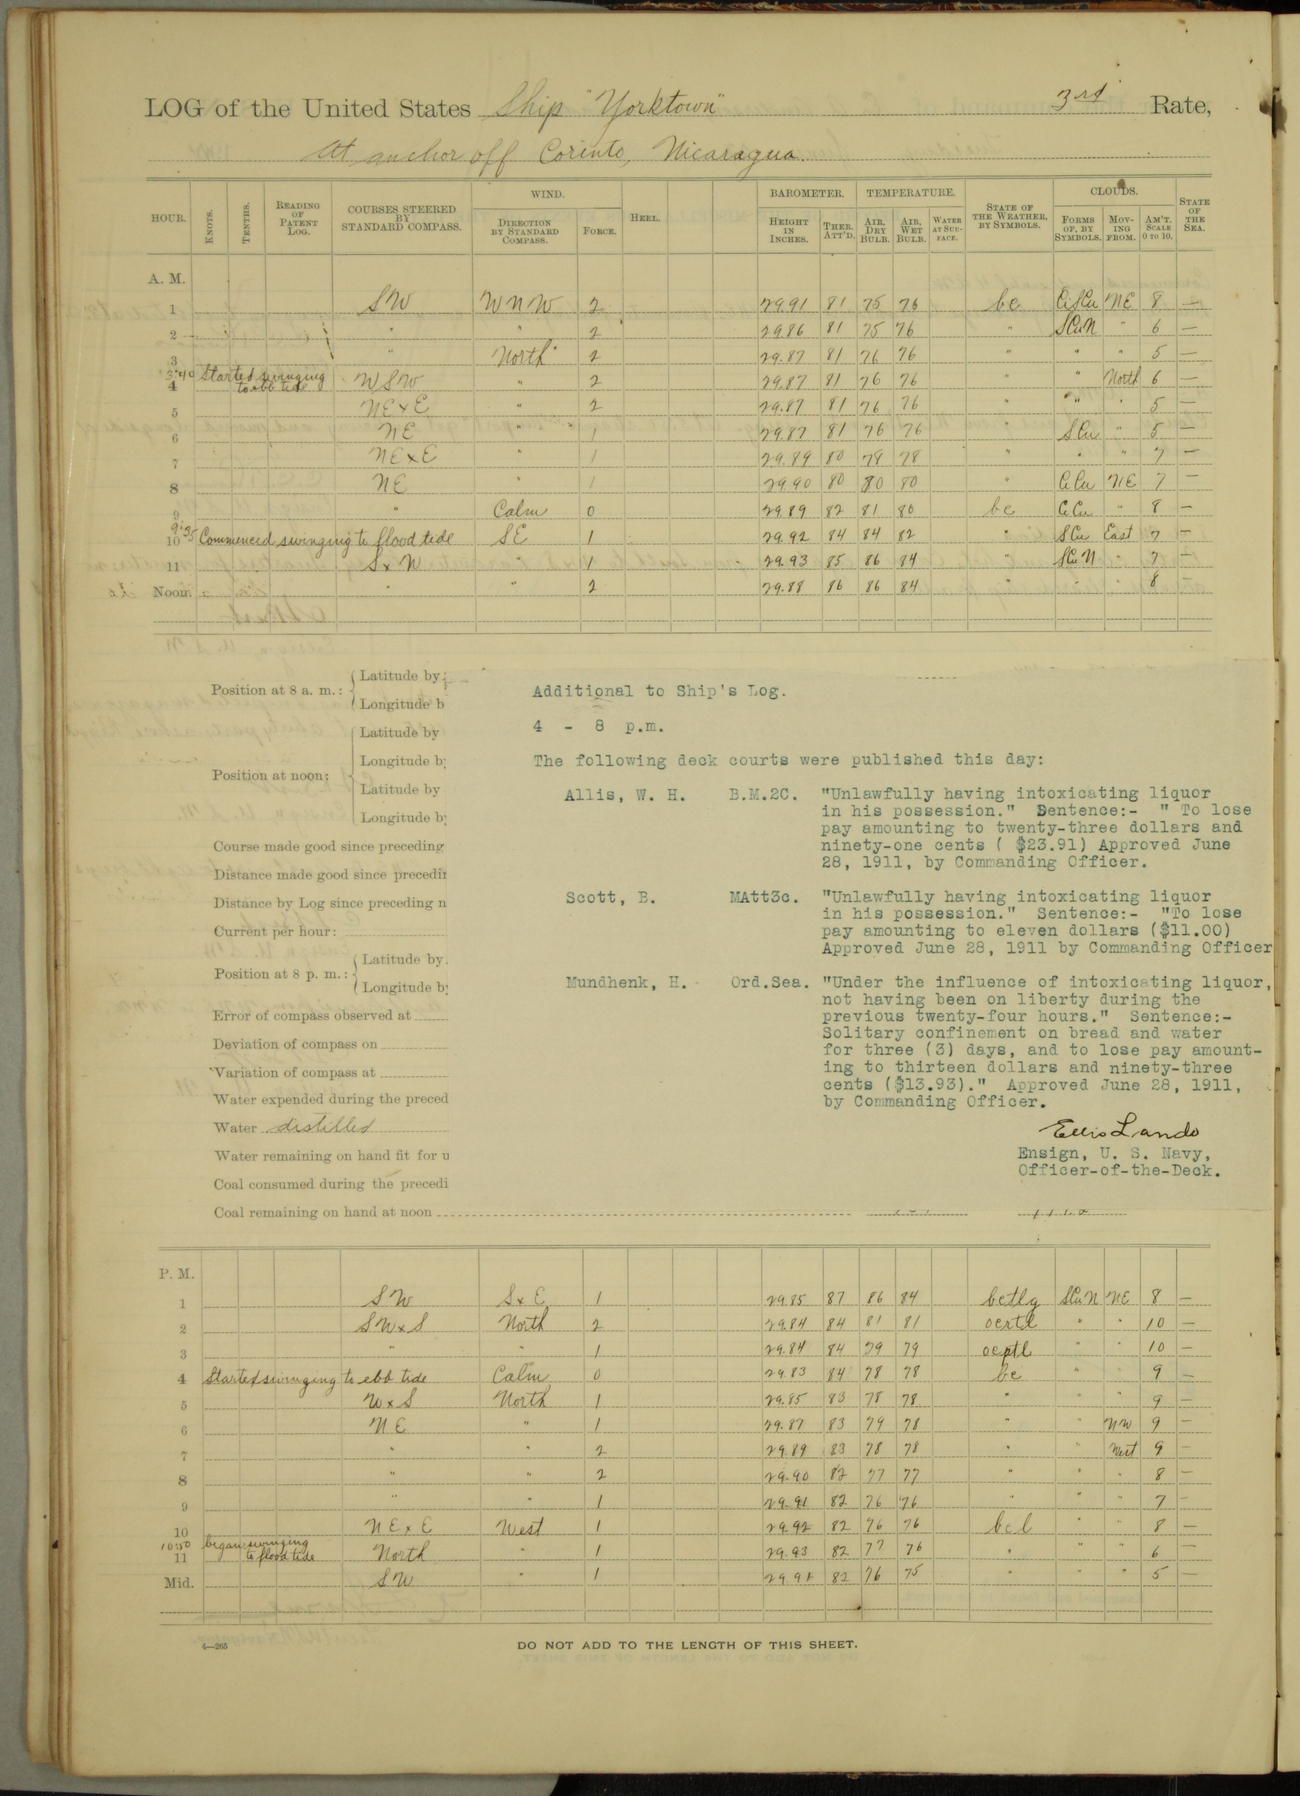 LOG of the United States Ship "Yorktown" 3rd Rate,
At anchor off Corinto, Nicaragua.
HOUR. KNOTS. TENTHS. READING OF PATENT LOG. COURSES STEERED BY STANDARD COMPASS. WIND. DIRECTION BY STANDARD COMPASS. FORCE. HEEL. BAROMETER. HEIGHT IN INCHES. THER. ATT'D. TEMPERATURE. AIR, DRY BULB. AIR, WET BULB. WATER AT SUR-FACE. STATE OF THE WEATHER, BY SYMBOLS. CLOUDS. FORMS OF, BY SYMBOLS. MOV-ING FROM. AM'T. SCALE 0 TO 10. STATE OF THE SEA.
A. M.
1 SW WNW 2 29.91 81 75 76 bc NE 8 —
2 " " 2 29.86 81 75 76 " SCuN " 6 —
3 " North 2 29.87 81 76 76 " " " 5 —
3:40 Started swinging to ebb tide
4 WSW " 2 29.87 81 76 76 " " North 6 —
5 NExE " 2 29.87 81 76 76 " " " 5 —
6 NE " 1 29.87 81 76 76 " SCu " 5 —
7 NExE " 1 29.89 80 79 78 " " " 7 —
8 NE " 1 29.90 80 80 80 " CiCu NE 7 —
9 " Calm 0 29.89 82 81 80 bc CiCu " 8 —
9:35 Commenced swinging to flood tide
10 SE 1 29.92 84 84 82 " SCu East 7 —
11 SxW " 1 29.93 85 86 84 " SCuN " 7 —
Noon " " 2 29.88 86 86 84 " " " 8
Position at 8 a. m.: Latitude by
Longitude b
Position at noon: Latitude by
Longitude by
Latitude by
Longitude by
Course made good since preceding
Distance made good since precedin
Distance by Log since preceding n
Current per hour:
Position at 8 p. m.: Latitude by
Longitude by
Error of compass observed at
Deviation of compass on
Variation of compass at
Water expended during the preced
Water distilled
Water remaining on hand fit for u
Coal consumed during the precedi
Coal remaining on hand at noon
Additional to Ship's Log.
4 - 8 p.m.
The following deck courts were published this day:
Allis, W. H. B.M.2C. "Unlawfully having intoxicating liquor
in his possession." Sentence:- " To lose
pay amounting to twenty-three dollars and
ninety-one cents ( $23.91) Approved June
28, 1911, by Commanding Officer.
Scott, B. MAtt3c. "Unlawfully having intoxicating liquor
in his possession." Sentence:- "To lose
pay amounting to eleven dollars ($11.00)
Approved June 28, 1911 by Commanding Officer
Mundhenk, H. Ord.Sea. "Under the influence of intoxicating liquor,
not having been on liberty during the
previous twenty-four hours." Sentence:-
Solitary confinement on bread and water
for three (3) days, and to lose pay amount-
ing to thirteen dollars and ninety-three
cents ($13.93)." Approved June 28, 1911,
by Commanding Officer.
Ellis Lando
Ensign, U. S. Navy,
Officer-of-the-Deck.
P. M.
1 SW SxE 1 29.85 87 86 84 bctlq SCuN NE 8 —
2 SWxS North 2 29.84 84 81 81 ocrtl " " 10 —
3 " " 1 29.84 84 79 79 ocptl " " 10 —
4 Started swinging to ebb tide Calm 0 29.83 84 78 78 bc " " 9 —
5 WxS North 1 29.85 83 78 78 " " " 9 —
6 NE " 1 29.87 83 79 78 " " NW 9 —
7 " " 2 29.89 83 78 78 " " West 9 —
8 " " 2 29.90 82 77 77 " " " 8 —
9 " " 1 29.91 82 76 76 " " " 7 —
10 NExE West 1 29.92 82 76 76 bcl " " 8 —
10:50 began swinging to flood tide
11 North " 1 29.93 82 77 76 " " " 6 —
Mid. SW " 1 29.91 82 76 75 " " " 5 —
4—265 DO NOT ADD TO THE LENGTH OF THIS SHEET.